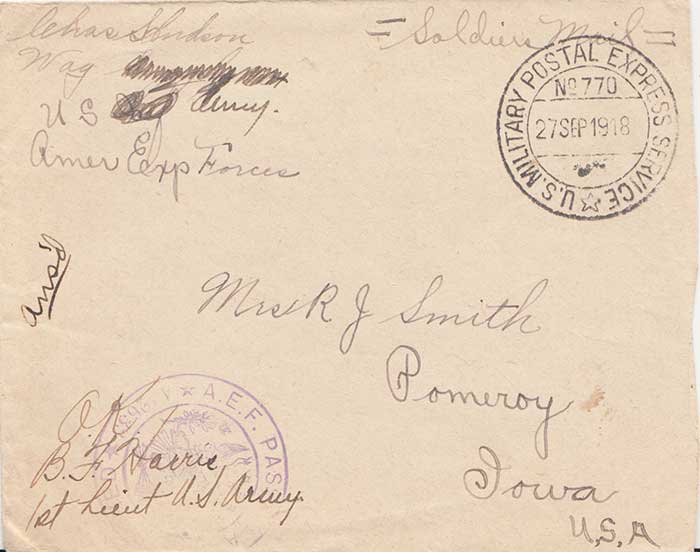 Chas S Hudson
Wag
U S Army.
Amer Exp Forces
= Soldiers Mail =
U.S. MILITARY POSTAL EXPRESS SERVICE
No 770
27 SEP 1918
ans'd
Mrs R J Smith
Pomeroy
Iowa
U.S.A
A.E.F. PAS
O.K.
B. F. Harris
1st Lieut U.S. Army.